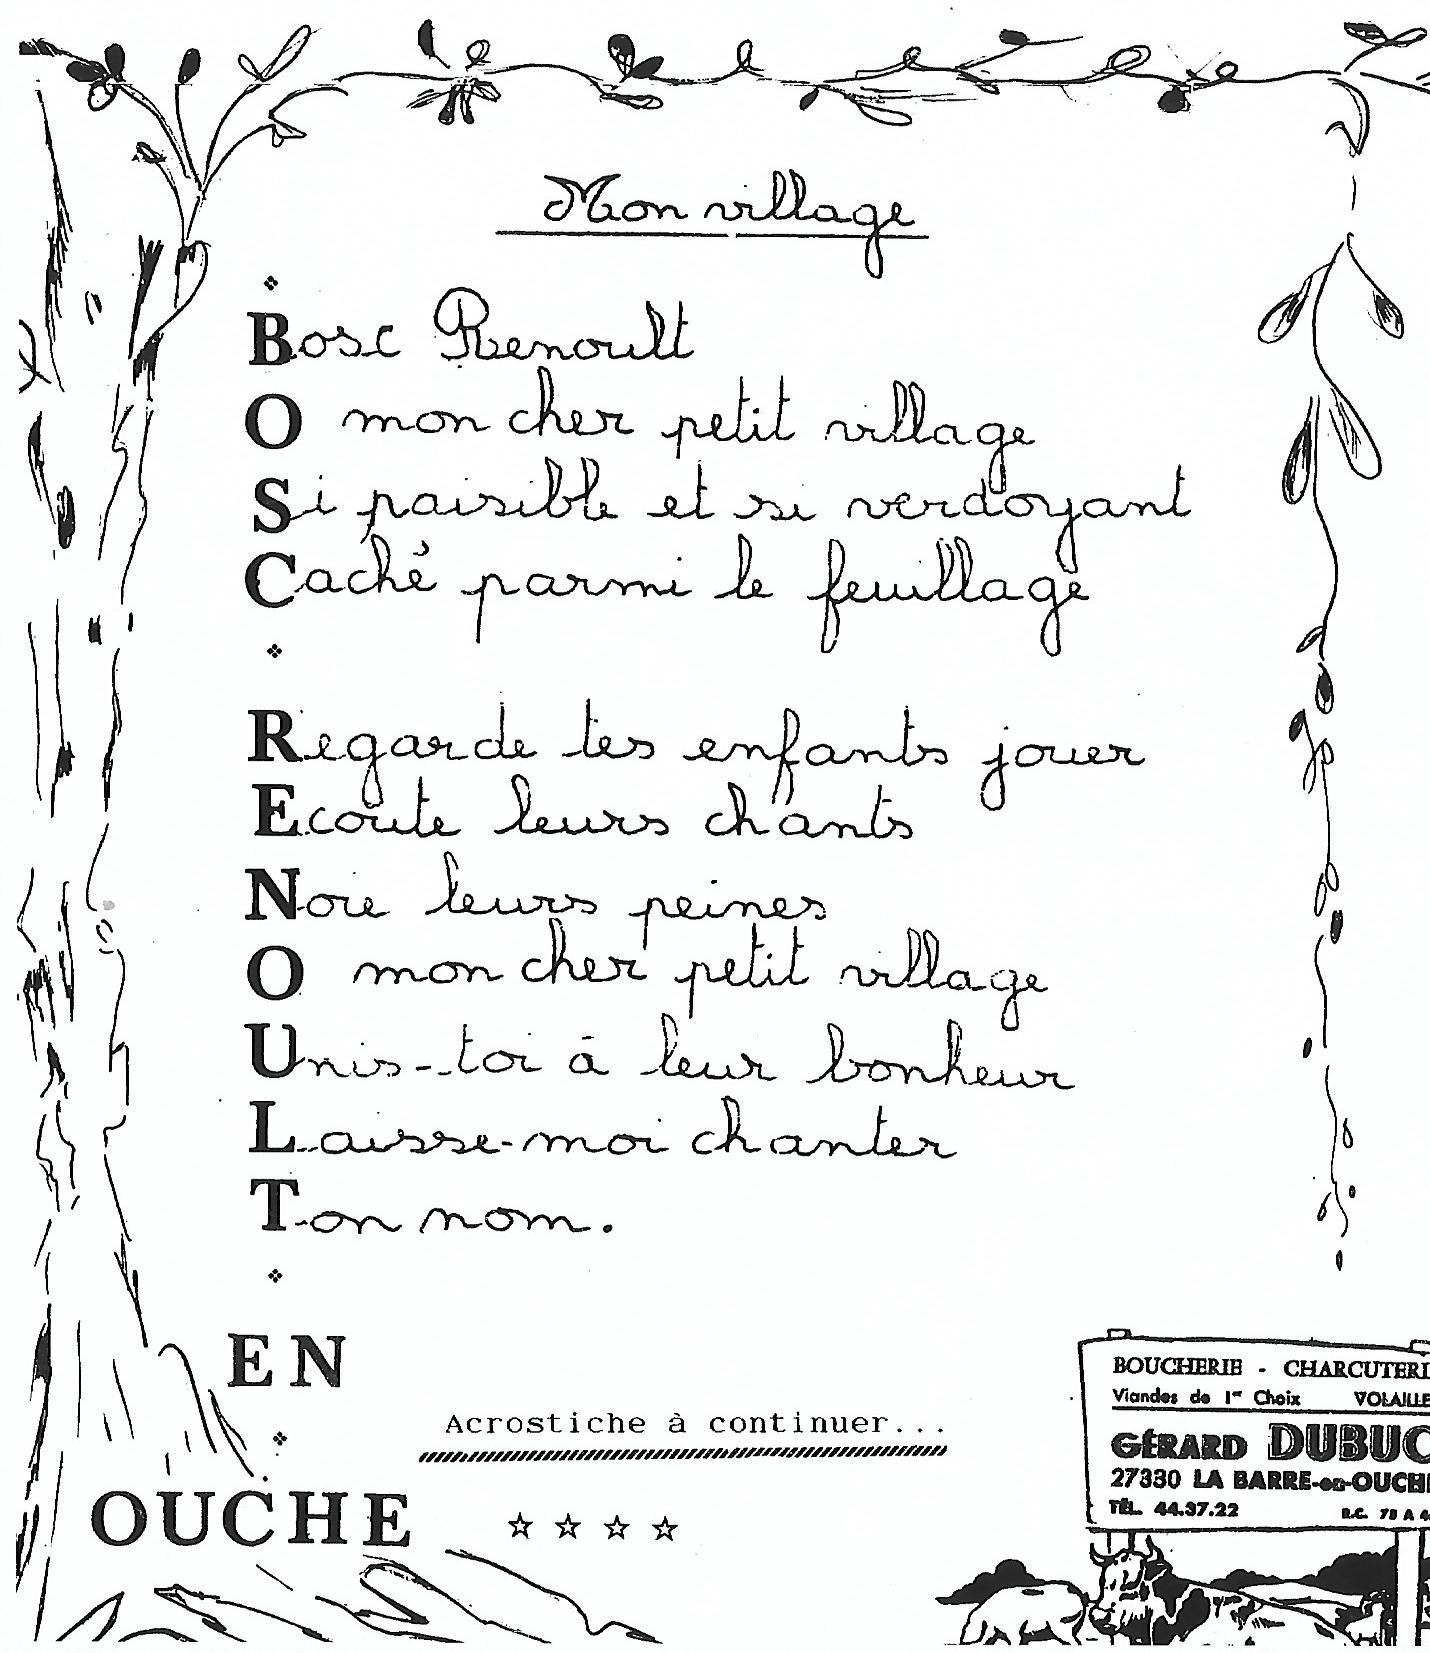 Mon village
Bosc Renoult
O mon cher petit village
Si paisible et si verdoyant
Caché parmi le feuillage
Regarde tes enfants jouer
Ecoute leurs chants
Noie leurs peines
O mon cher petit village
Unis-toi à leur bonheur
Laisse-moi chanter
Ton nom.
EN
Acrostiche à continuer...
OUCHE ☆ ☆ ☆ ☆
BOUCHERIE - CHARCUTERI
Viandes de 1er Choix VOLAILLE
GÉRARD DUBUC
27330 LA BARRE-en-OUCHE
TÉL. 44.37.22 R.C. 78 A